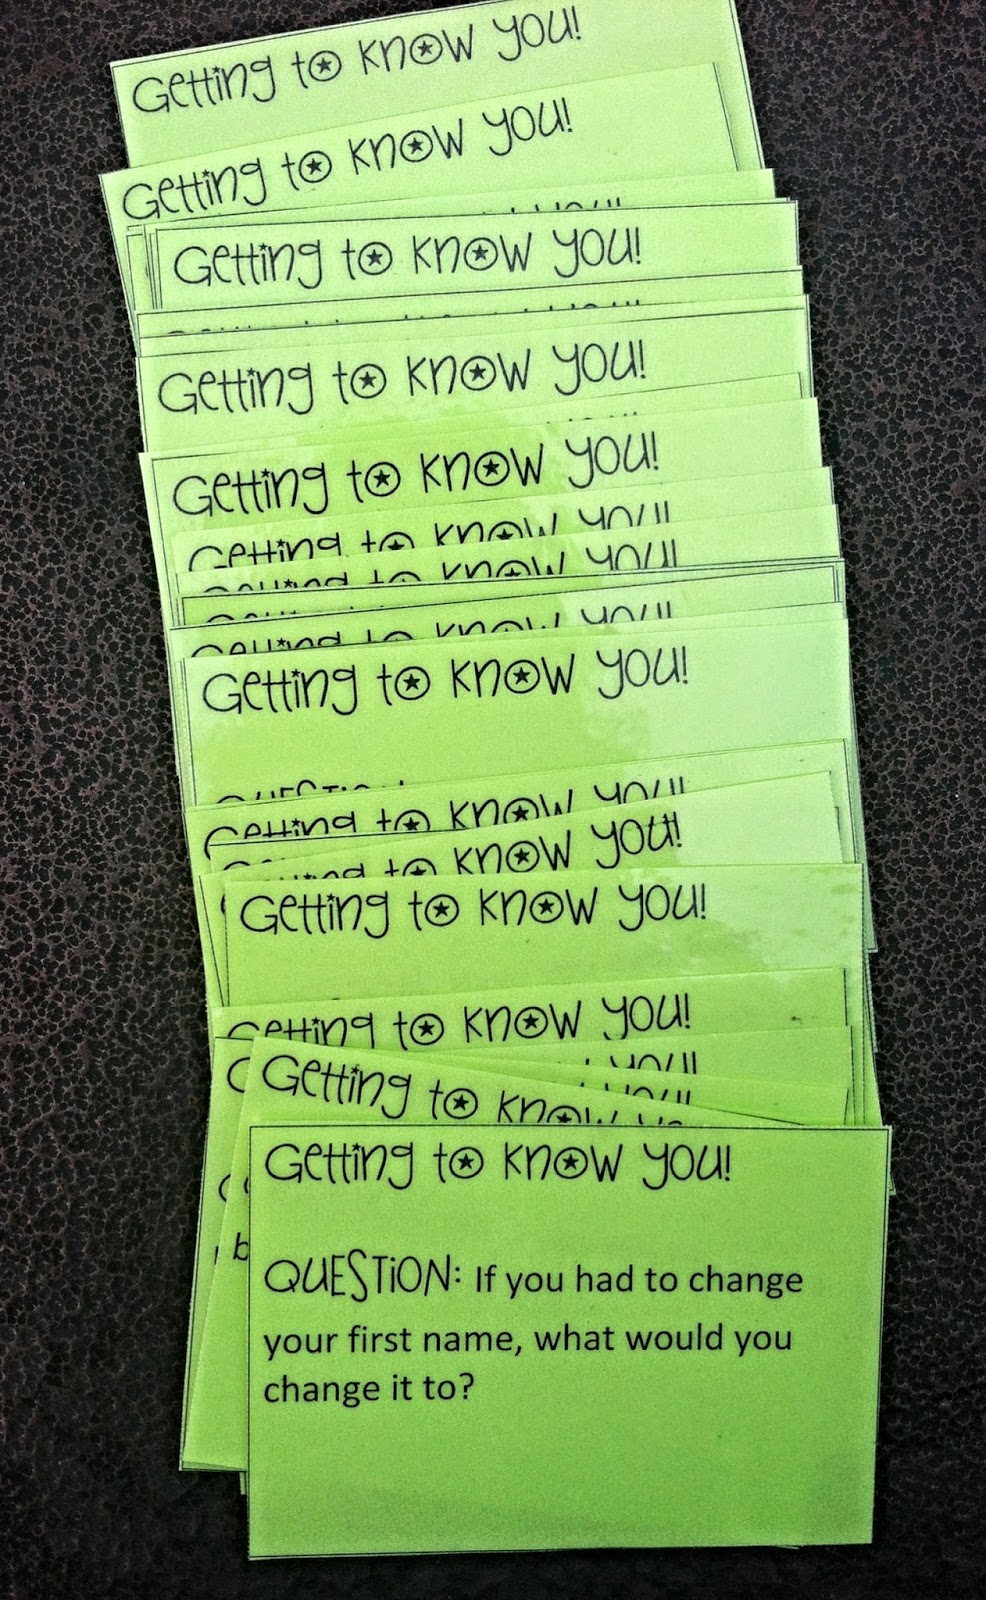 Getting to know you!
Getting to know you!
you!
Getting to know you!
Getting to know you!
Getting to know you!
Getting to know you!
Getting to know you!
Getting to know you!
Getting to know you!
QUESTION:
Getting to know you!
Getting to know you!
Getting to know you!
Getting to know you!
you!
Getting to know
Getting to know you!
QUESTION: If you had to change
your first name, what would you
change it to?